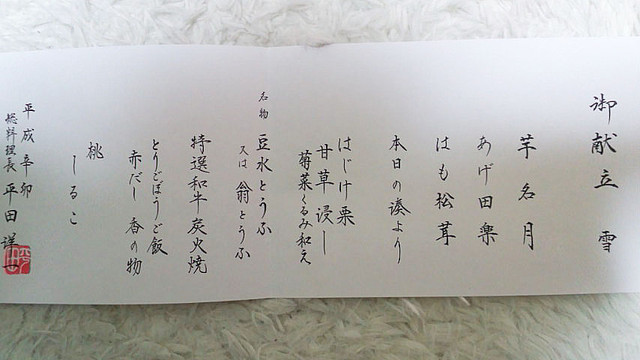 御献立 雪
芋名月
あげ田楽
はも松茸
本日の湊より
はじけ栗
甘草浸し
菊菜くるみ和え
名物 豆水とうふ
又は 翁とうふ
特選和牛炭火焼
とりごぼうご飯
赤だし 香の物
桃
しるこ
平成辛卯
総料理長 平田